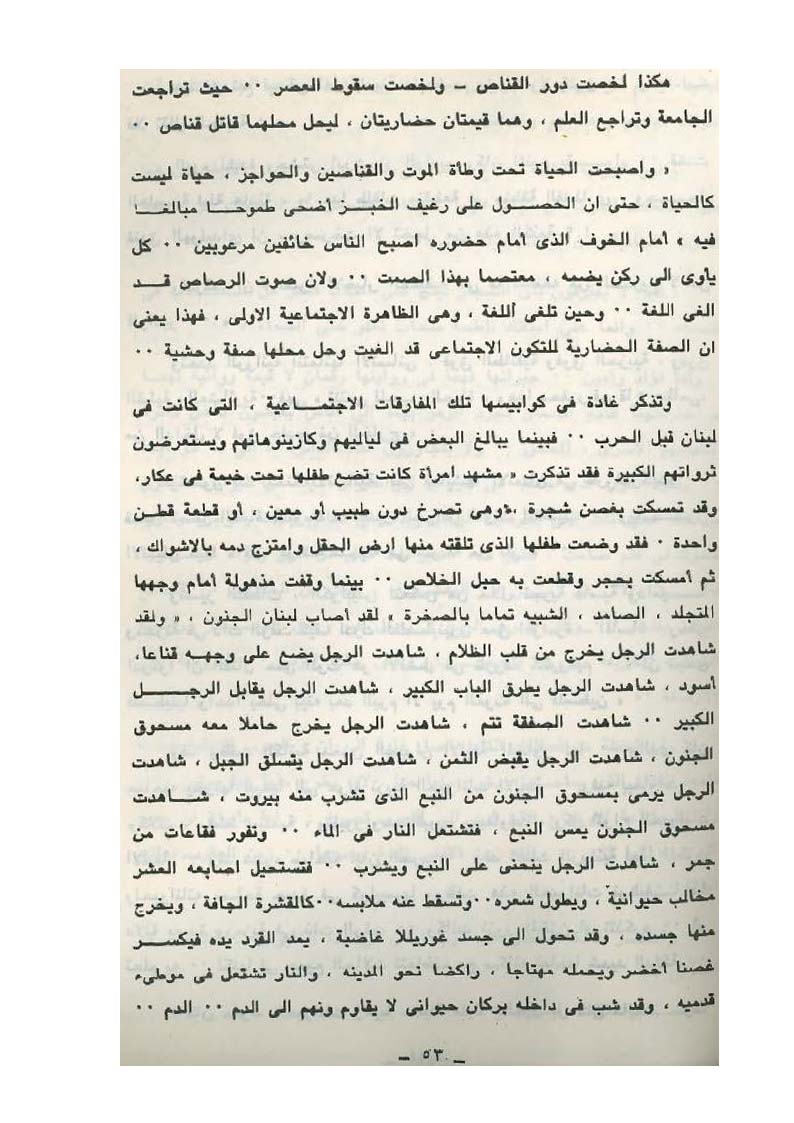 هكذا لخصت دور القناص – ولخصت سقوط العصر ٠٠ حيث تراجعت
الجامعة وتراجع العلم ، وهما قيمتان حضاريتان ، ليحل محلهما قاتل قناص ٠٠
« واصبحت الحياة تحت وطأة الموت والقناصين والحواجز ، حياة ليست
كالحياة ، حتى ان الحصــول على رغيف الخبــز أضحى طموحــا مبالغــا
فيه » أمام الخوف الذى أمام حضوره اصبح الناس خائفين مرعوبين ٠٠ كل
يأوى الى ركن يضمه ، معتصما بهذا الصمت ٠٠ ولان صوت الرصاص قــد
الغى اللغة ٠٠ وحين تلغى أللغة ، وهى الظاهرة الاجتماعية الاولى ، فهذا يعنى
ان الصفة الحضارية للتكون الاجتماعى قد الغيت وحل محلها صفة وحشية ٠٠
وتذكر غادة فى كوابيسها تلك المفارقات الاجتمــاعية ، التى كانت فى
لبنان قبل الحرب ٠٠ فبينما يبالغ البعض فى لياليهم وكازينوهاتهم ويستعرضون
ثرواتهم الكبيرة فقد تذكرت « مشهد امرأة كانت تضع طفلها تحت خيمة فى عكار،
وقد تمسكت بغصن شجرة ، وهى تصرخ دون طبيب أو معين ، أو قطعة قطــن
واحدة ٠ فقد وضعت طفلها الذى تلقته منها ارض الحقل وامتزج دمه بالاشواك ،
ثم أمسكت بحجر وقطعت به حبل الخلاص ٠٠ بينما وقفت مذهولة أمام وجهها
المتجلد ، الصامد ، الشبيه تماما بالصخرة » لقد أصاب لبنان الجنون ، « ولقد
شاهدت الرجل يخرج من قلب الظلام ، شاهدت الرجل يضع على وجهــه قناعا،
أسود ، شاهدت الرجل يطرق الباب الكبير ، شاهدت الرجل يقابل الرجــــل
الكبير ٠٠ شاهدت الصفقة تتم ، شاهدت الرجل يخرج حاملا معه مسحوق
الجنون ، شاهدت الرجل يقبض الثمن ، شاهدت الرجل يتسلق الجبل ، شاهدت
الرجل يرمى بمسحوق الجنون من النبع الذى تشرب منه بيروت ، شــاهدت
مسحوق الجنون يمس النبع ، فتشتعل النار فى الماء ٠٠ وتفور فقاعات من
جمر ، شاهدت الرجل ينحنى على النبع ويشرب ٠٠ فتستحيل اصابعه العشر
مخالب حيوانية ، ويطول شعره ٠٠ وتسقط عنه ملابسه ٠٠ كالقشرة الجافة ، ويخرج
منها جسده ، وقد تحول الى جسد غوريللا غاضبة ، يمد القرد يده فيكســر
غصنا أخضر ويحمله مهتاجا ، راكضا نحو المدينه ، والنار تشتعل فى موطىء
قدميه ، وقد شب فى داخله بركان حيوانى لا يقاوم ونهم الى الدم ٠٠ الدم ٠٠
– ٥٣ –